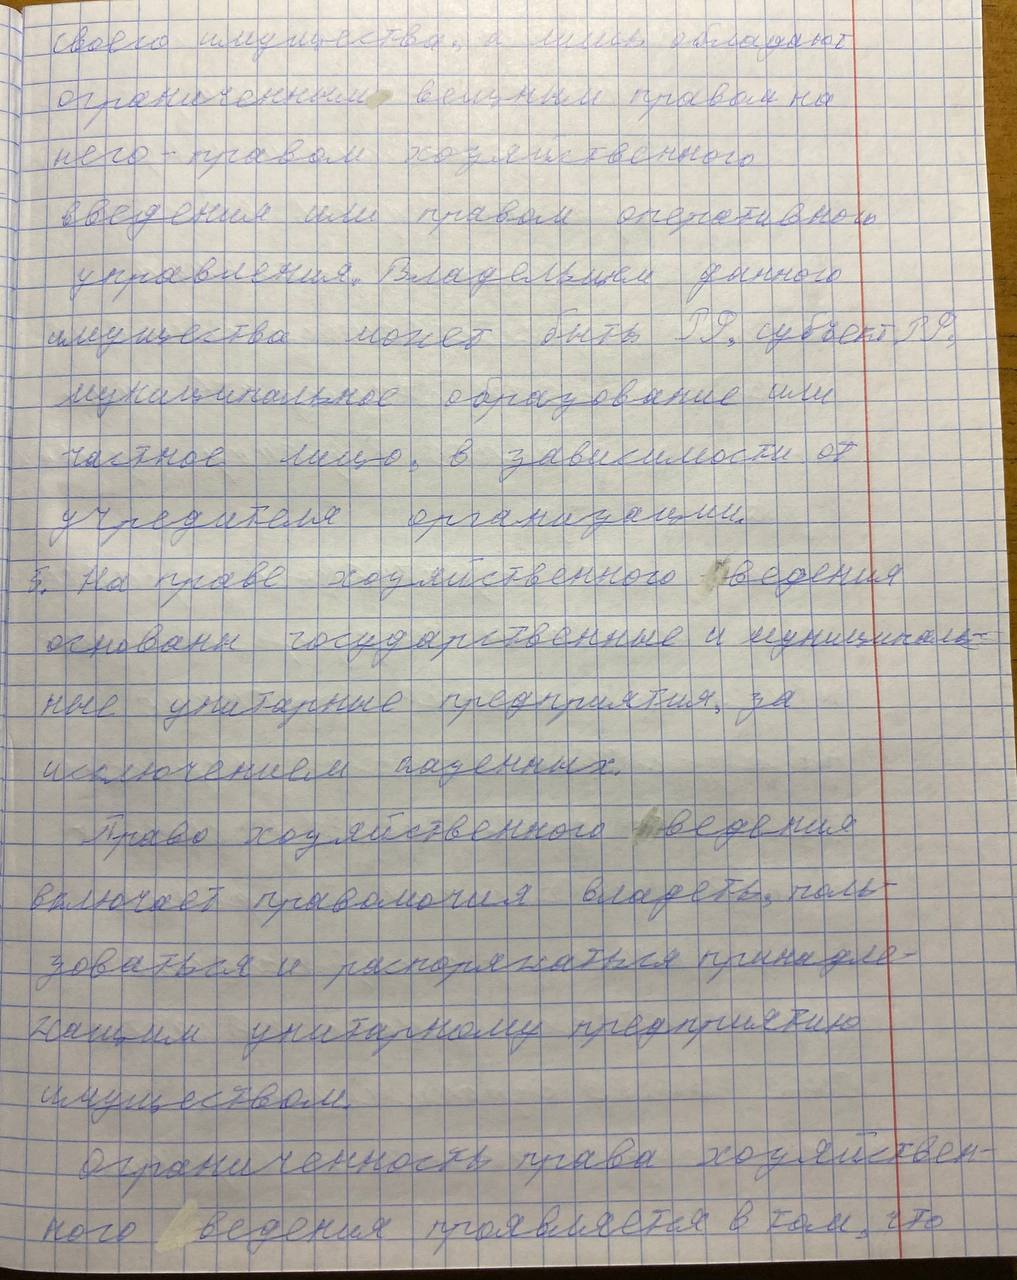 своего имущества, а лишь обладают
ограниченным вещным правом на
него - правом хозяйственного
введения или правом оперативного
управления. Владельцем данного
имущества может быть РФ, субъект РФ,
муниципальное образование или
частное лицо, в зависимости от
учредителя организации.
5. На праве хозяйственного ведения
основаны государственные и муниципаль-
ные унитарные предприятия, за
исключением казенных.
Право хозяйственного ведения
включает правомочия владеть, поль-
зоваться и распоряжаться принадле-
жащим унитарному предприятию
имуществом.
Ограниченность права хозяйствен-
ного ведения проявляется в том, что